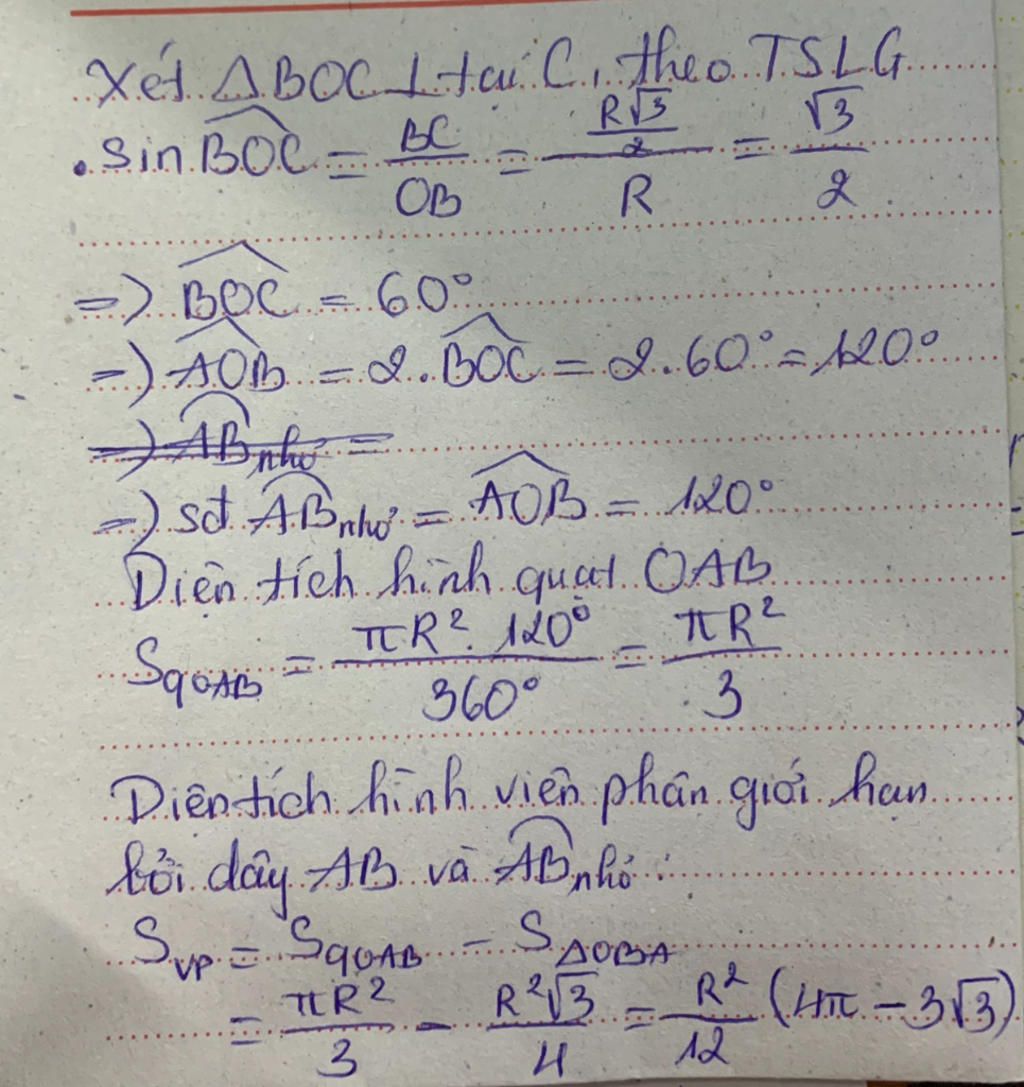 Xét ΔBOC ⊥ tại C, theo TSLG
. sin BOC = BC/OB = (R√3/2)/R = √3/2
=) BOC = 60°
=) AOB = 2. BOC = 2.60° = 120°
=) AB nhỏ =
=) sđ AB nhỏ = AOB = 120°
Diện tích hình quạt OAB
SqOAB = πR². 120°/360° = πR²/3
Diện tích hình viên phân giới hạn
bởi dây AB và AB nhỏ:
SVP = SqOAB - SΔOBA
= πR²/3 - R²√3/4 = R²/12 (4π - 3√3)